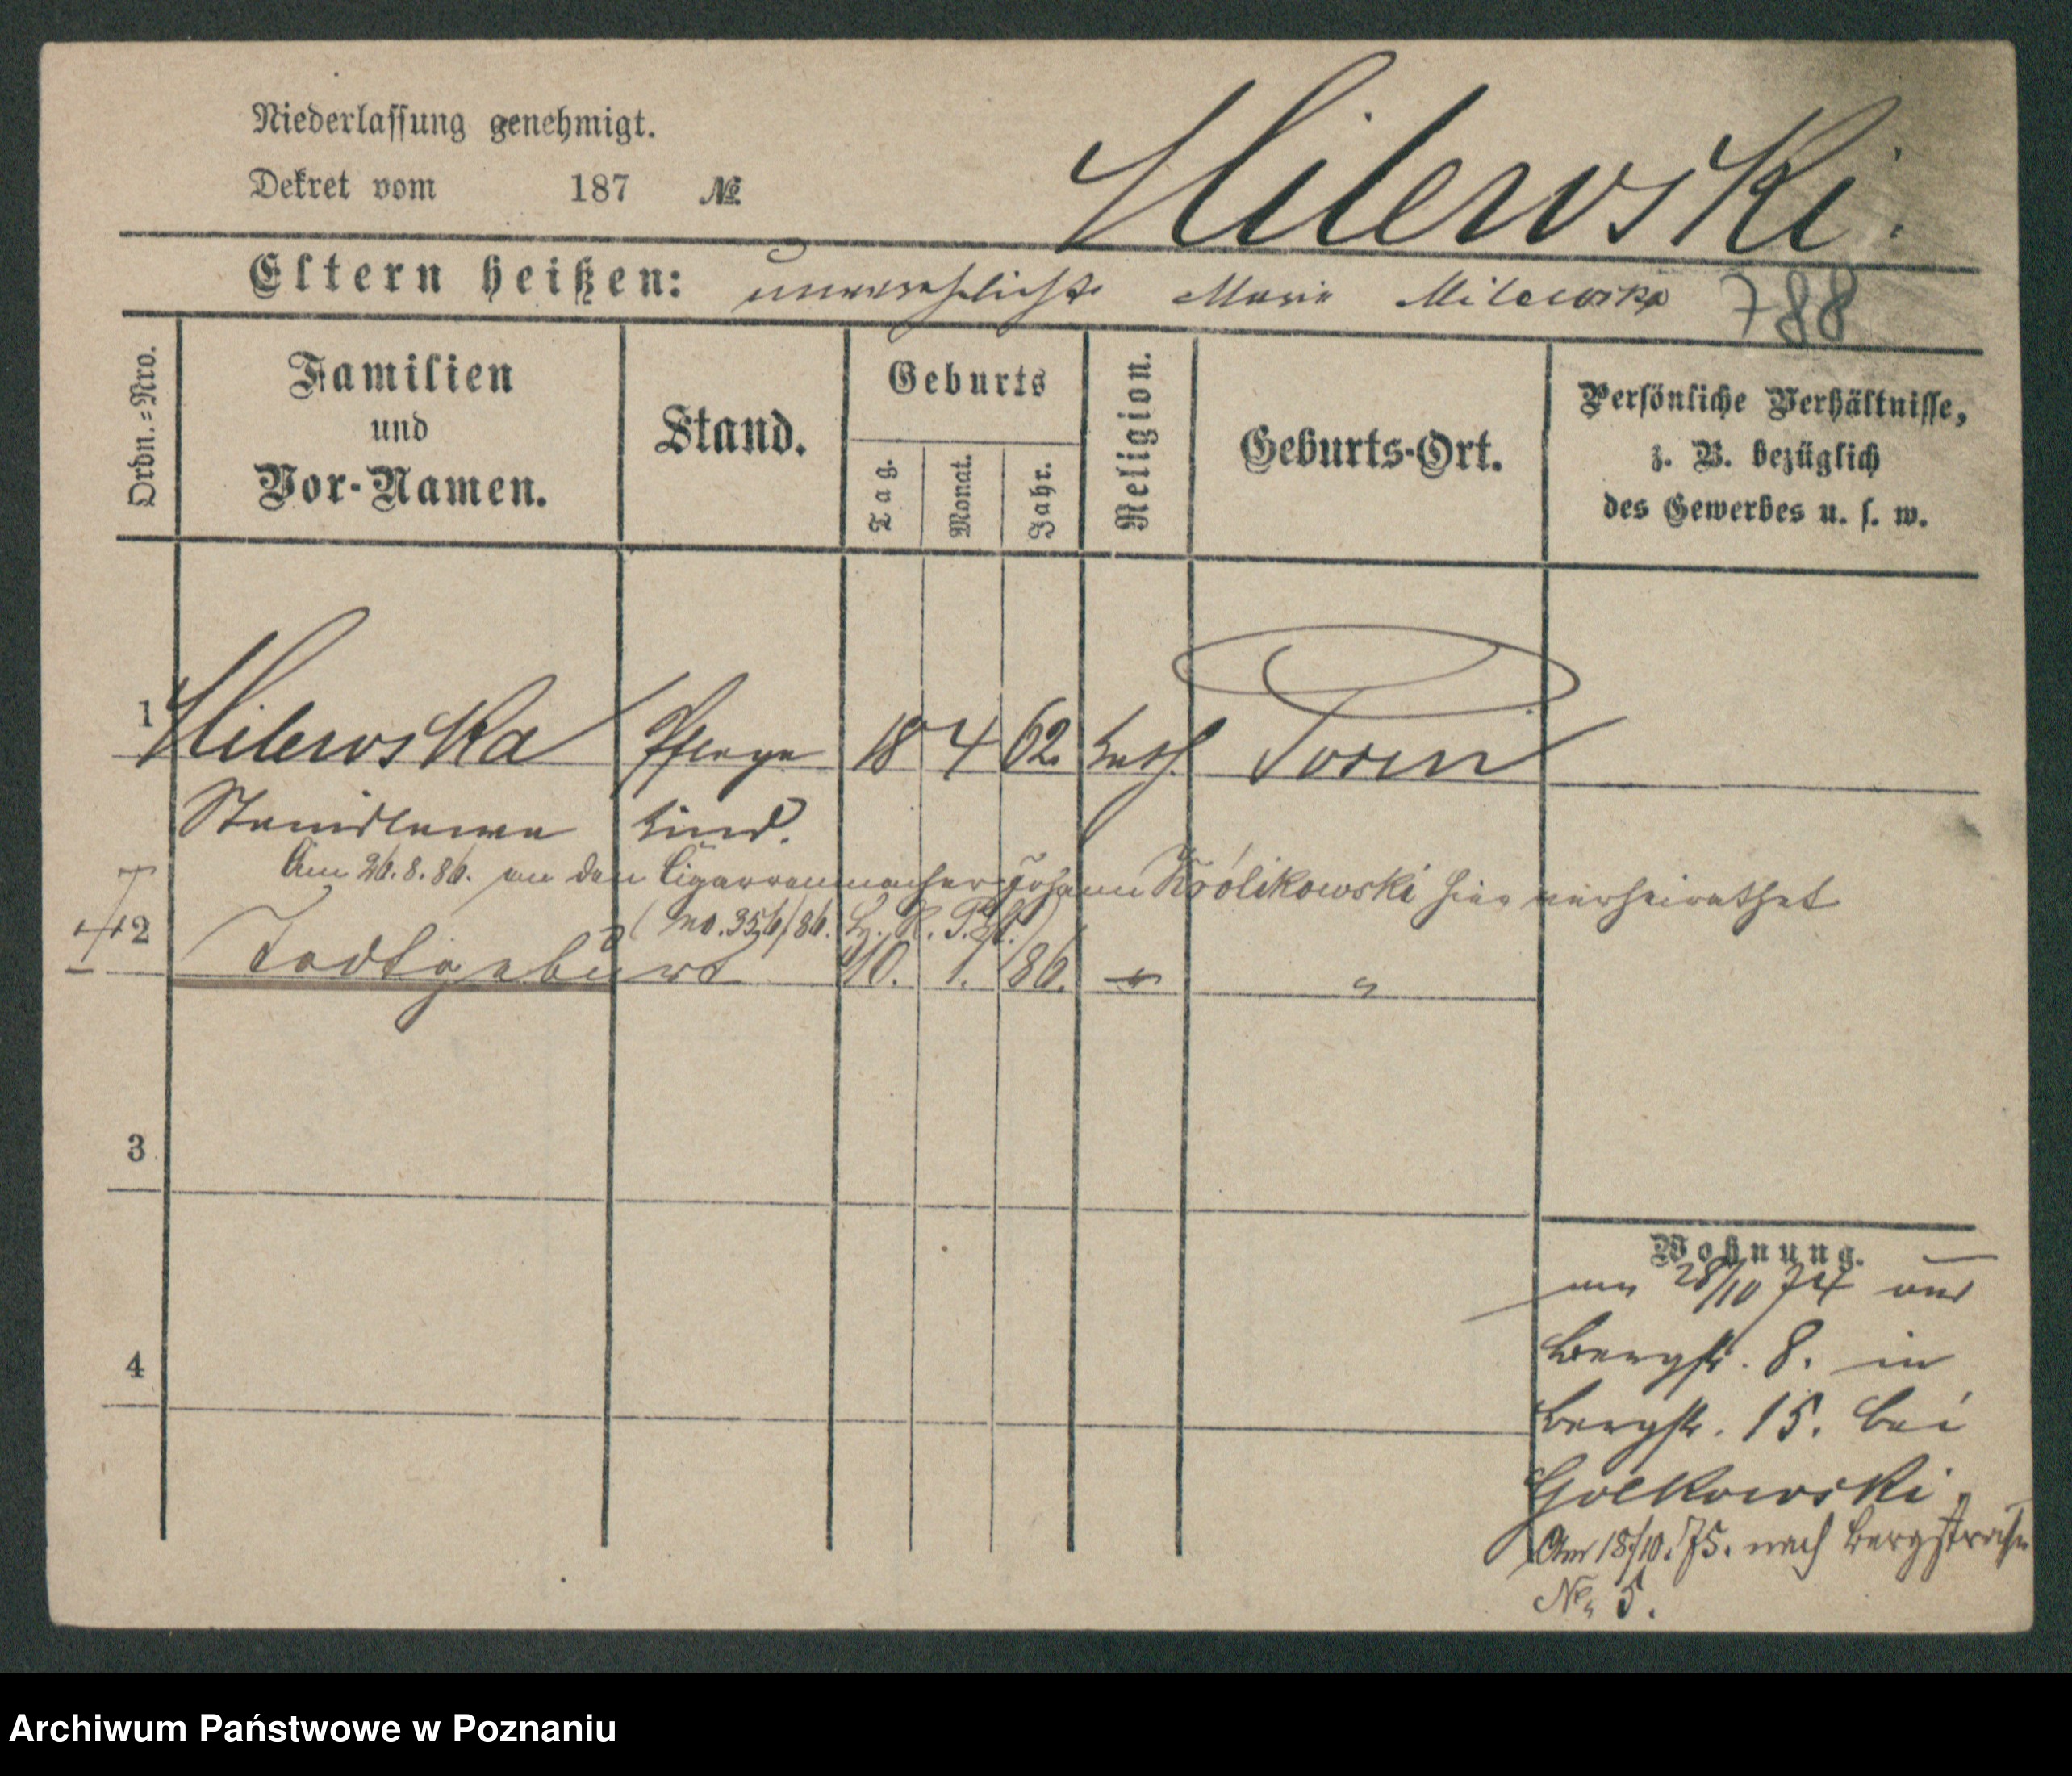 Niederlassung genehmigt.
Dekret vom 187 №
Milewski.
Eltern heißen: unverehelichte Marie Milewska
788
Ordn.=Nro.
Familien
und
Vor-Namen.
Stand.
Geburts
Tag.
Monat.
Jahr.
Religion.
Geburts-Ort.
Persönliche Verhältnisse,
z. B. bezüglich
des Gewerbes u. s. w.
1 Milewska Pflege 18 4 62 kath. Posen
Stanislawa kind.
Am 26.8.86. an den Cigarrenmacher Johann Królikowski hier verheirathet
(No. 356/86.
2 Todtgeburt 10. 1. 86. " "
3
4
Wohnung.
am 28/10 74 aus
Bergstr. 8. in
Bergstr. 15. bei
Golkowski.
Am 18/10. 75. nach Bergstraße
No 5.
Archiwum Państwowe w Poznaniu